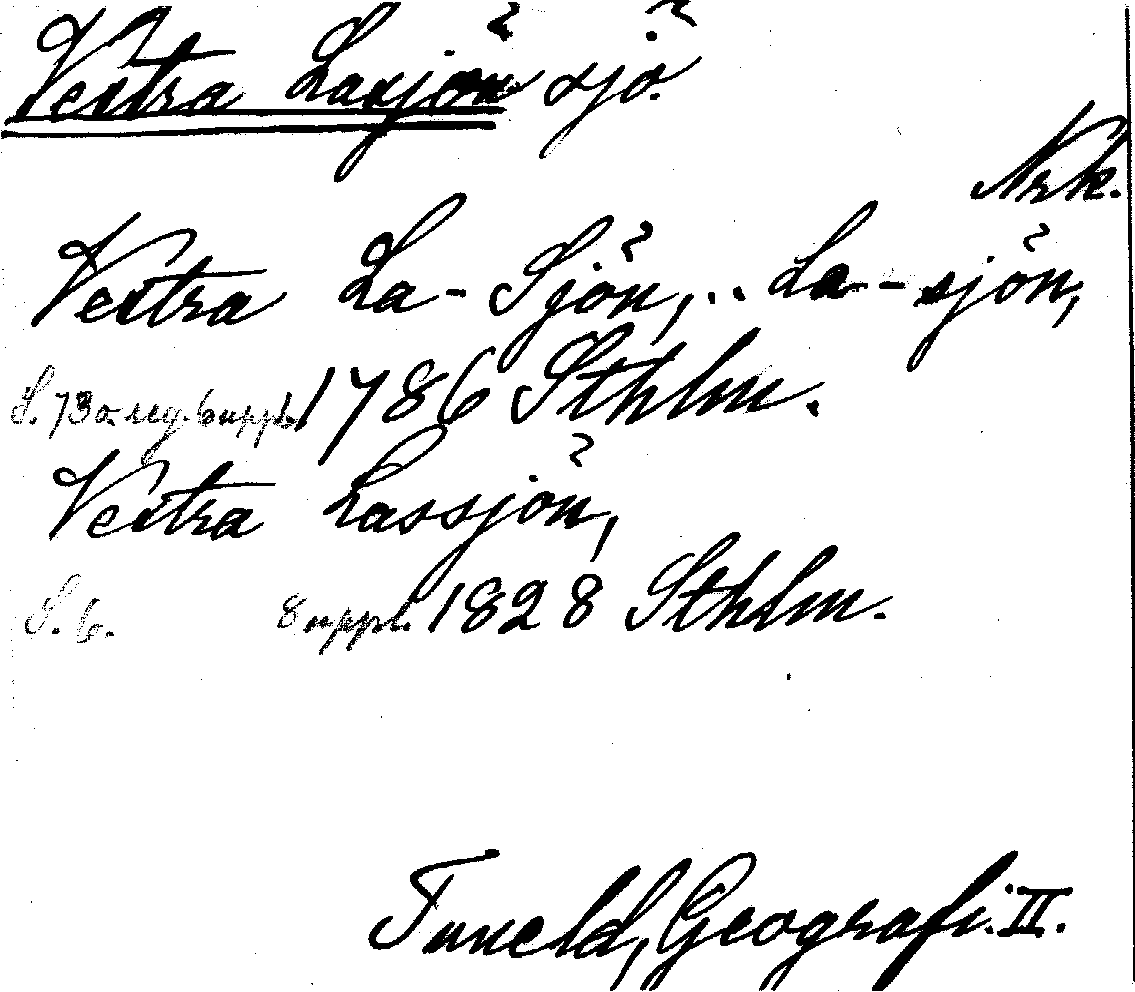 Vestra Lasjön sjö.
Nrk.
Vestra La-Sjön, .. La--sjön,
S. 73 o. reg. 6 uppl. 1786 Sthlm.
Vestra Lassjön,
S. 6. 8 uppl. 1828 Sthlm.
Tuneld, Geografi. II.